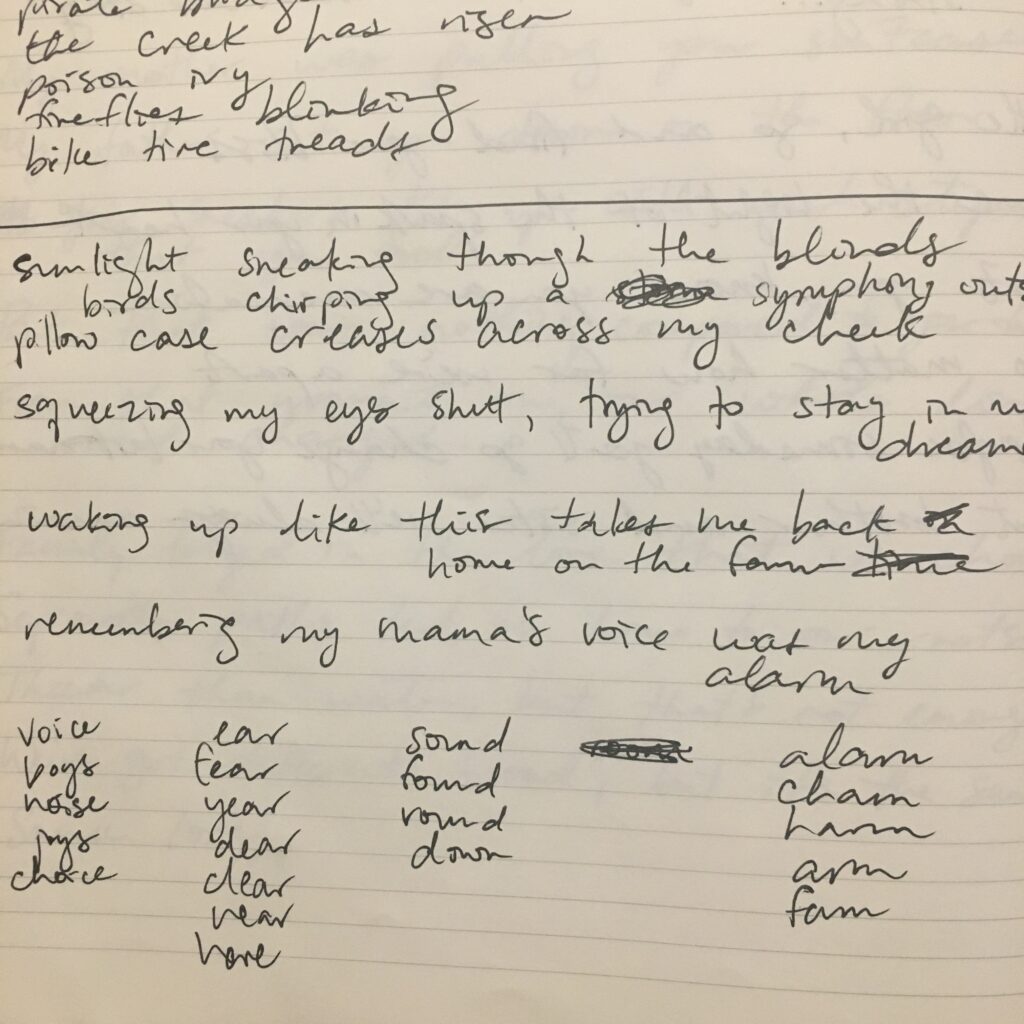 pirate
the creek has risen
poison ivy
fireflies blinking
bike tire treads
sunlight sneaking though the blinds
birds chirping up a symphony outs
pillow case creases across my cheek
squeezing my eyes shut, trying to stay in m
dream
waking up like this takes me back
home on the farm time
remembering my mama's voice was my
alarm
voice ear sound alarm
boys fear found charm
noise year round harm
joys dear down arm
choice clear farm
near
here